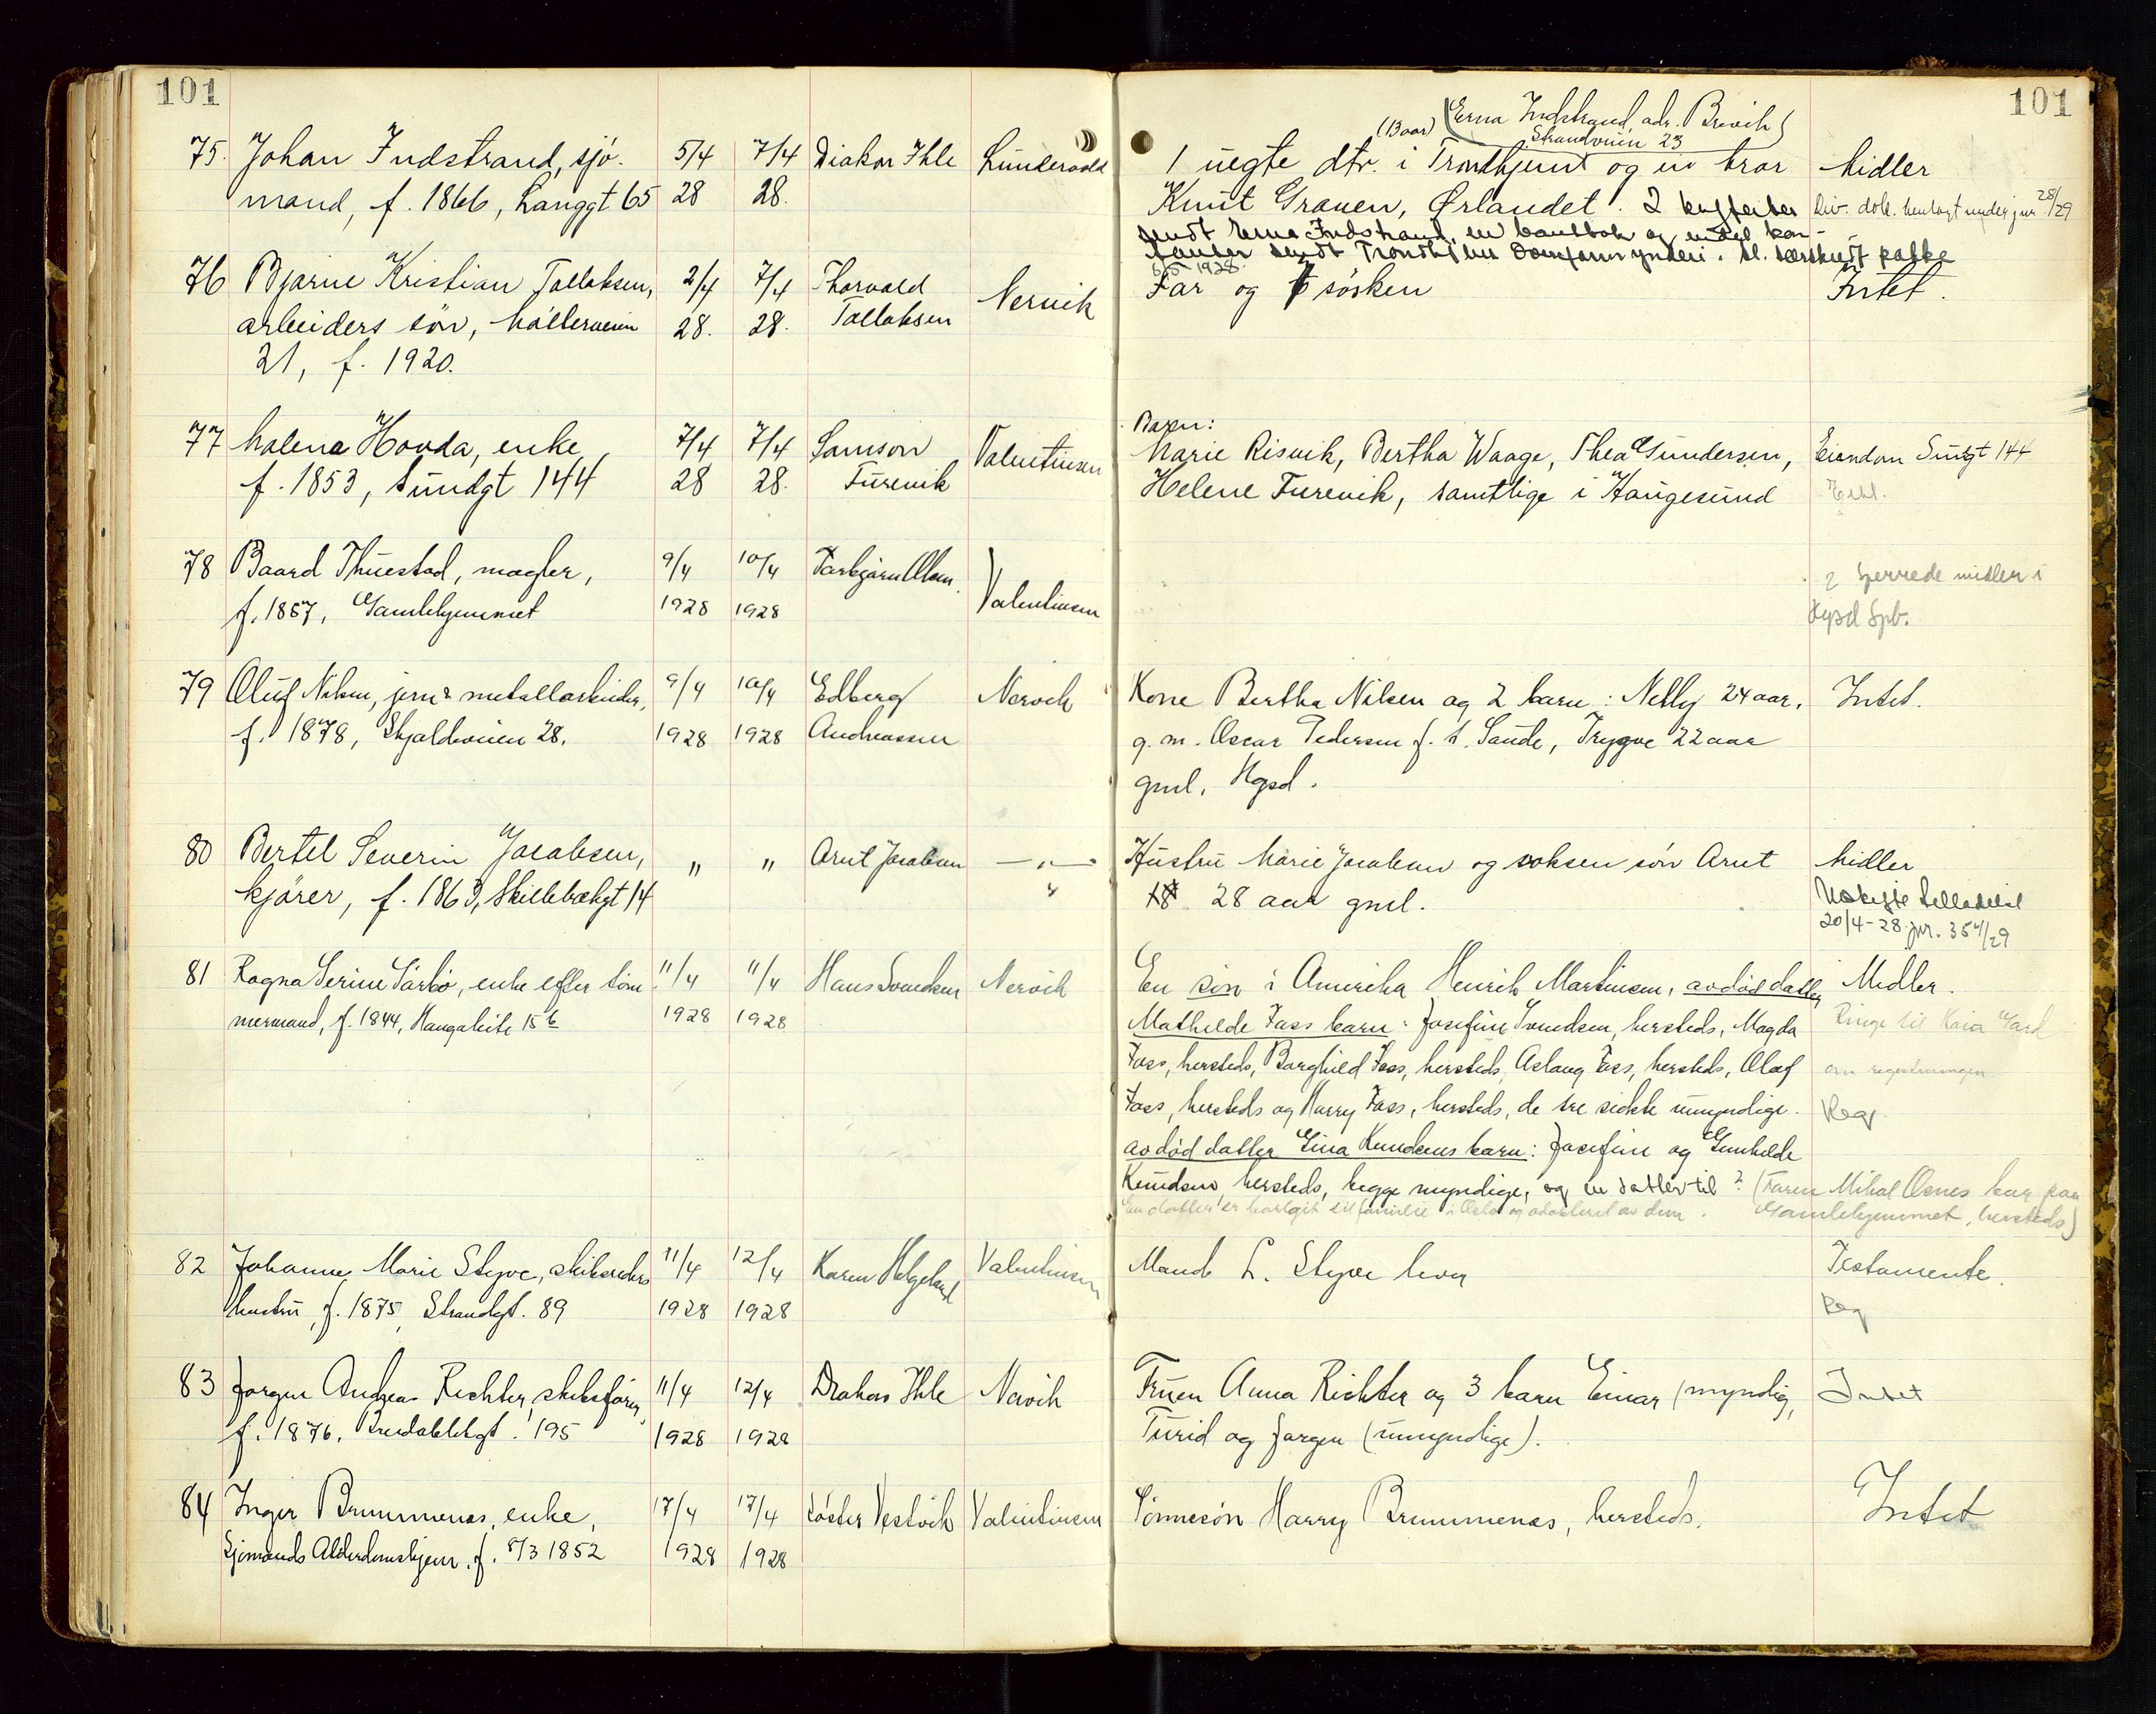 101
101
75. Johan Indstrand, sjö- 5/4 7/4 Diakon Ihle Lundevold
mand, f. 1866, Langgt 65 28 28.
(13 aar) (Erna Indstrand, adr. Brevik)
Strandveien 23
1 uegte dtr. i Trondhjem og en bror Midler
Knut Graven, Ørlandet. 2 kufferter Div. dok. henlagt under jnr 28/29
sendt Erna Indstrand, en bankbok og endel kon-
tanter sendt Trondhjem Overformynderi. særskilt pakke
1928.
76 Bjarne Kristian Tollaksen, 2/4 7/4 Thorvald Nervik Far og 6 søsken Intet.
arbeiders sön, 28. 28. Tollaksen
21, f. 1920.
77 Malena Hovda, enke, 7/4 7/4 Samson Valentinsen
f. 1853, Sundgt 144 28 28. Furevik
Barn:
Marie Risvik, Bertha Waage, Thea Gundersen, Eiendom Sundgt 144
Helene Furevik, samtlige i Haugesund
78 Baard Thuestad, mægler, 9/4 10/4 Torbjørn Olsen. Valentinsen
f. 1857, Gamlehjemmet 1928 1928
2 sperrede midler i
Hgsd Spb.
79 Oluf Nilsen, jern & metallarbeider, 9/4 10/4 Edberg Nervik
f. 1878, Skjoldveien 28. 1928 1928 Andreassen
Kone Bertha Nilsen og 2 barn: Nelly 24 aar, Intet.
g. m. Oscar Pedersen f. t. Sauda, Trygve 22 aar
gml, Hgsd.
80 Bertel Severin Jacobsen, " " Arnt Jacobsen — " —
kjörer, f. 1863, Skillebækgt 14
Hustru Marie Jacobsen og voksen sön Arnt Midler
28 aar gml. Uskifte
20/4-28. jnr. 354/29
81 Ragna Serine Sörbö, enke efter töm- 11/4 11/4 Hans Svendsen Nervik
mermand, f. 1844, Haugaleite 15b 1928 1928
En sön i Amerika Henrik Martinsen, avdöd datter Midler.
Mathilde Foss barn: Josefine Svendsen, hersteds, Magda Ringe til Kaia Gard
Foss, hersteds, Borghild Foss, hersteds, Aslaug Foss, hersteds, Olaf om registreringen
Foss, hersteds og Harry Foss, hersteds, de tre sidste umyndige. Reg.
avdöd datter Gina Knudsens barn: Josefine og Gunhilde
Knudsen, hersteds, begge myndige, og en datter til? (Faren Mikal Osnes bor paa
En datter er bortgit til familie i Oslo og adoptert av dem. Gamlehjemmet, hersteds)
82 Johanne Marie Stegve, skibsreders 11/4 12/4 Karen Helgeland Valentinsen
hustru, f. 1875, Strandgt. 89 1928 1928
Mand L. Stegve lever Testamente.
Reg
83 Jörgen Andreas Richter, skibsförer, 11/4 12/4 Diakon Ihle Nervik
f. 1876, 195 1928 1928
Fruen Anna Richter og 3 barn Einar (myndig, Intet
Turid og Jørgen (umyndige).
84 Inger Brummenæs, enke, 17/4 17/4 Söster Vestvik Valentinsen
Sjömands Alderdomshjem, f. 8/3 1852 1928 1928
Sönnesön Harry Brummenæs, hersteds. Intet